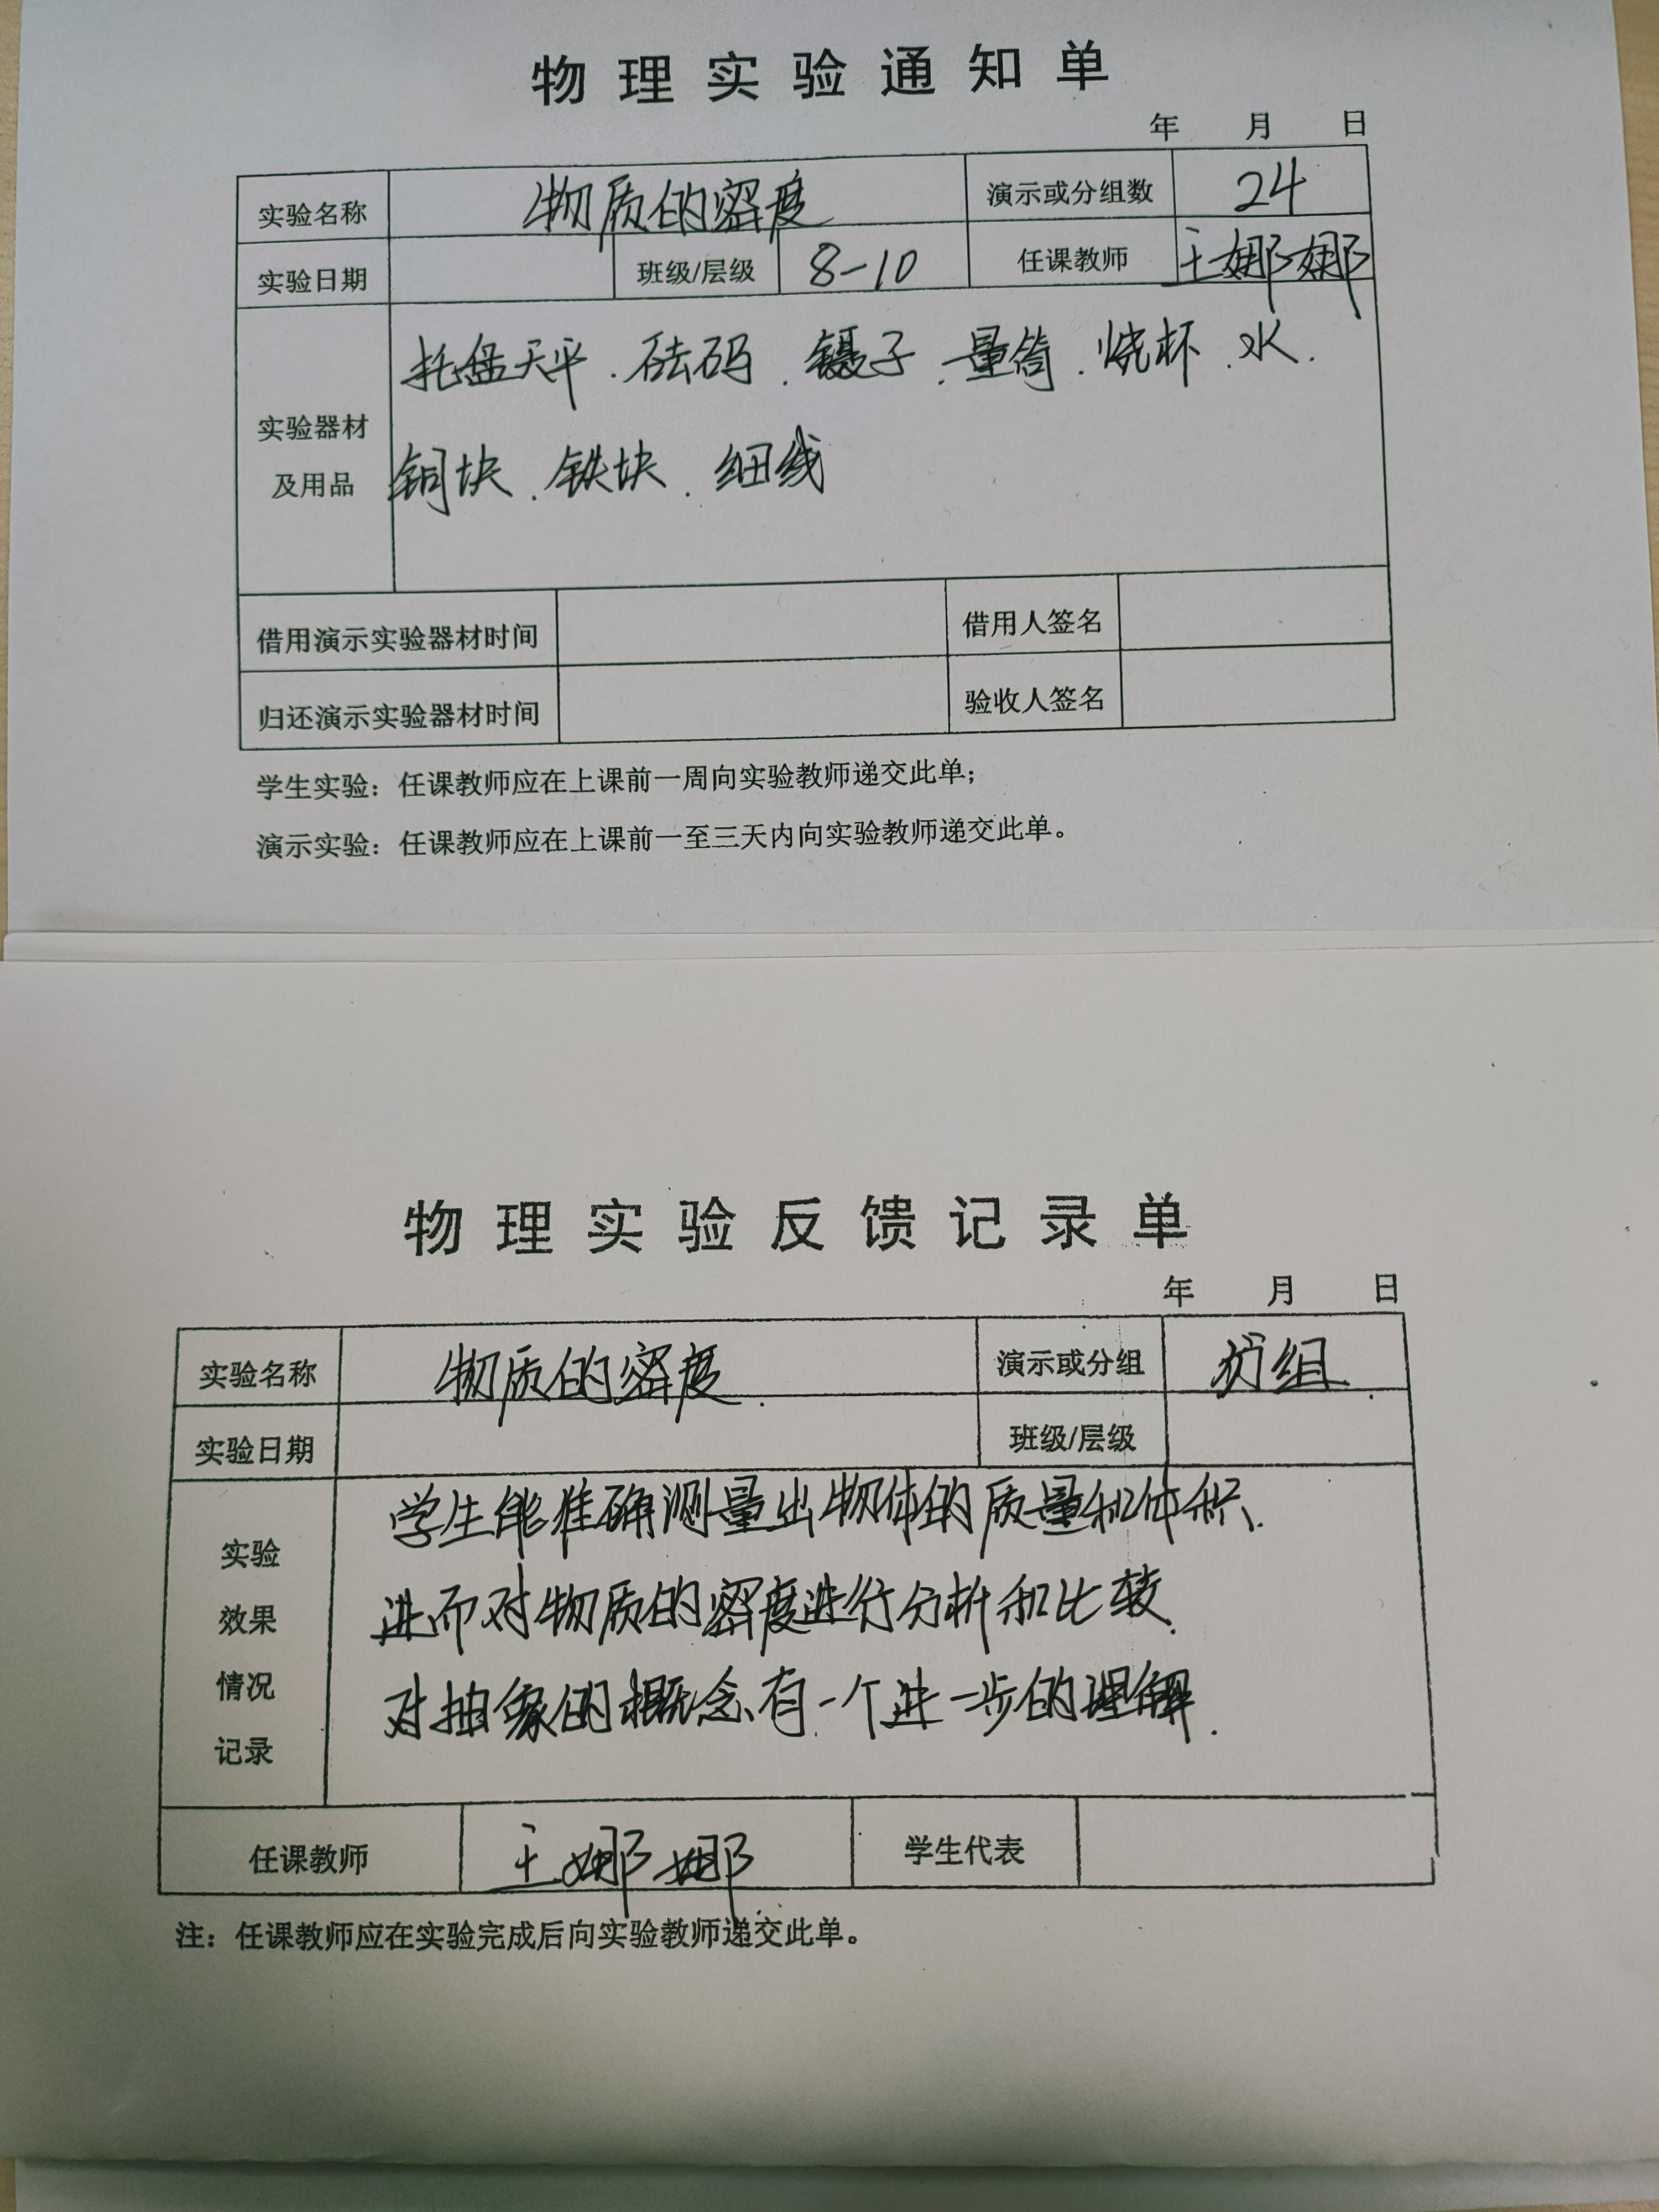 物理实验通知单
年 月 日
实验名称 物质的密度 演示或分组数 24
实验日期 班级/层级 8-10 任课教师 王娜娜
实验器材及用品
托盘天平.砝码.镊子.量筒.烧杯.水.
铜块.铁块.细线
借用演示实验器材时间 借用人签名
归还演示实验器材时间 验收人签名
学生实验：任课教师应在上课前一周向实验教师递交此单；
演示实验：任课教师应在上课前一至三天内向实验教师递交此单。
物理实验反馈记录单
年 月 日
实验名称 物质的密度. 演示或分组 分组.
实验日期 班级/层级
实验效果情况记录
学生能准确测量出物体的质量和体积.
进而对物质的密度进行分析和比较.
对抽象的概念有一个进一步的理解.
任课教师 王娜娜 学生代表
注：任课教师应在实验完成后向实验教师递交此单。